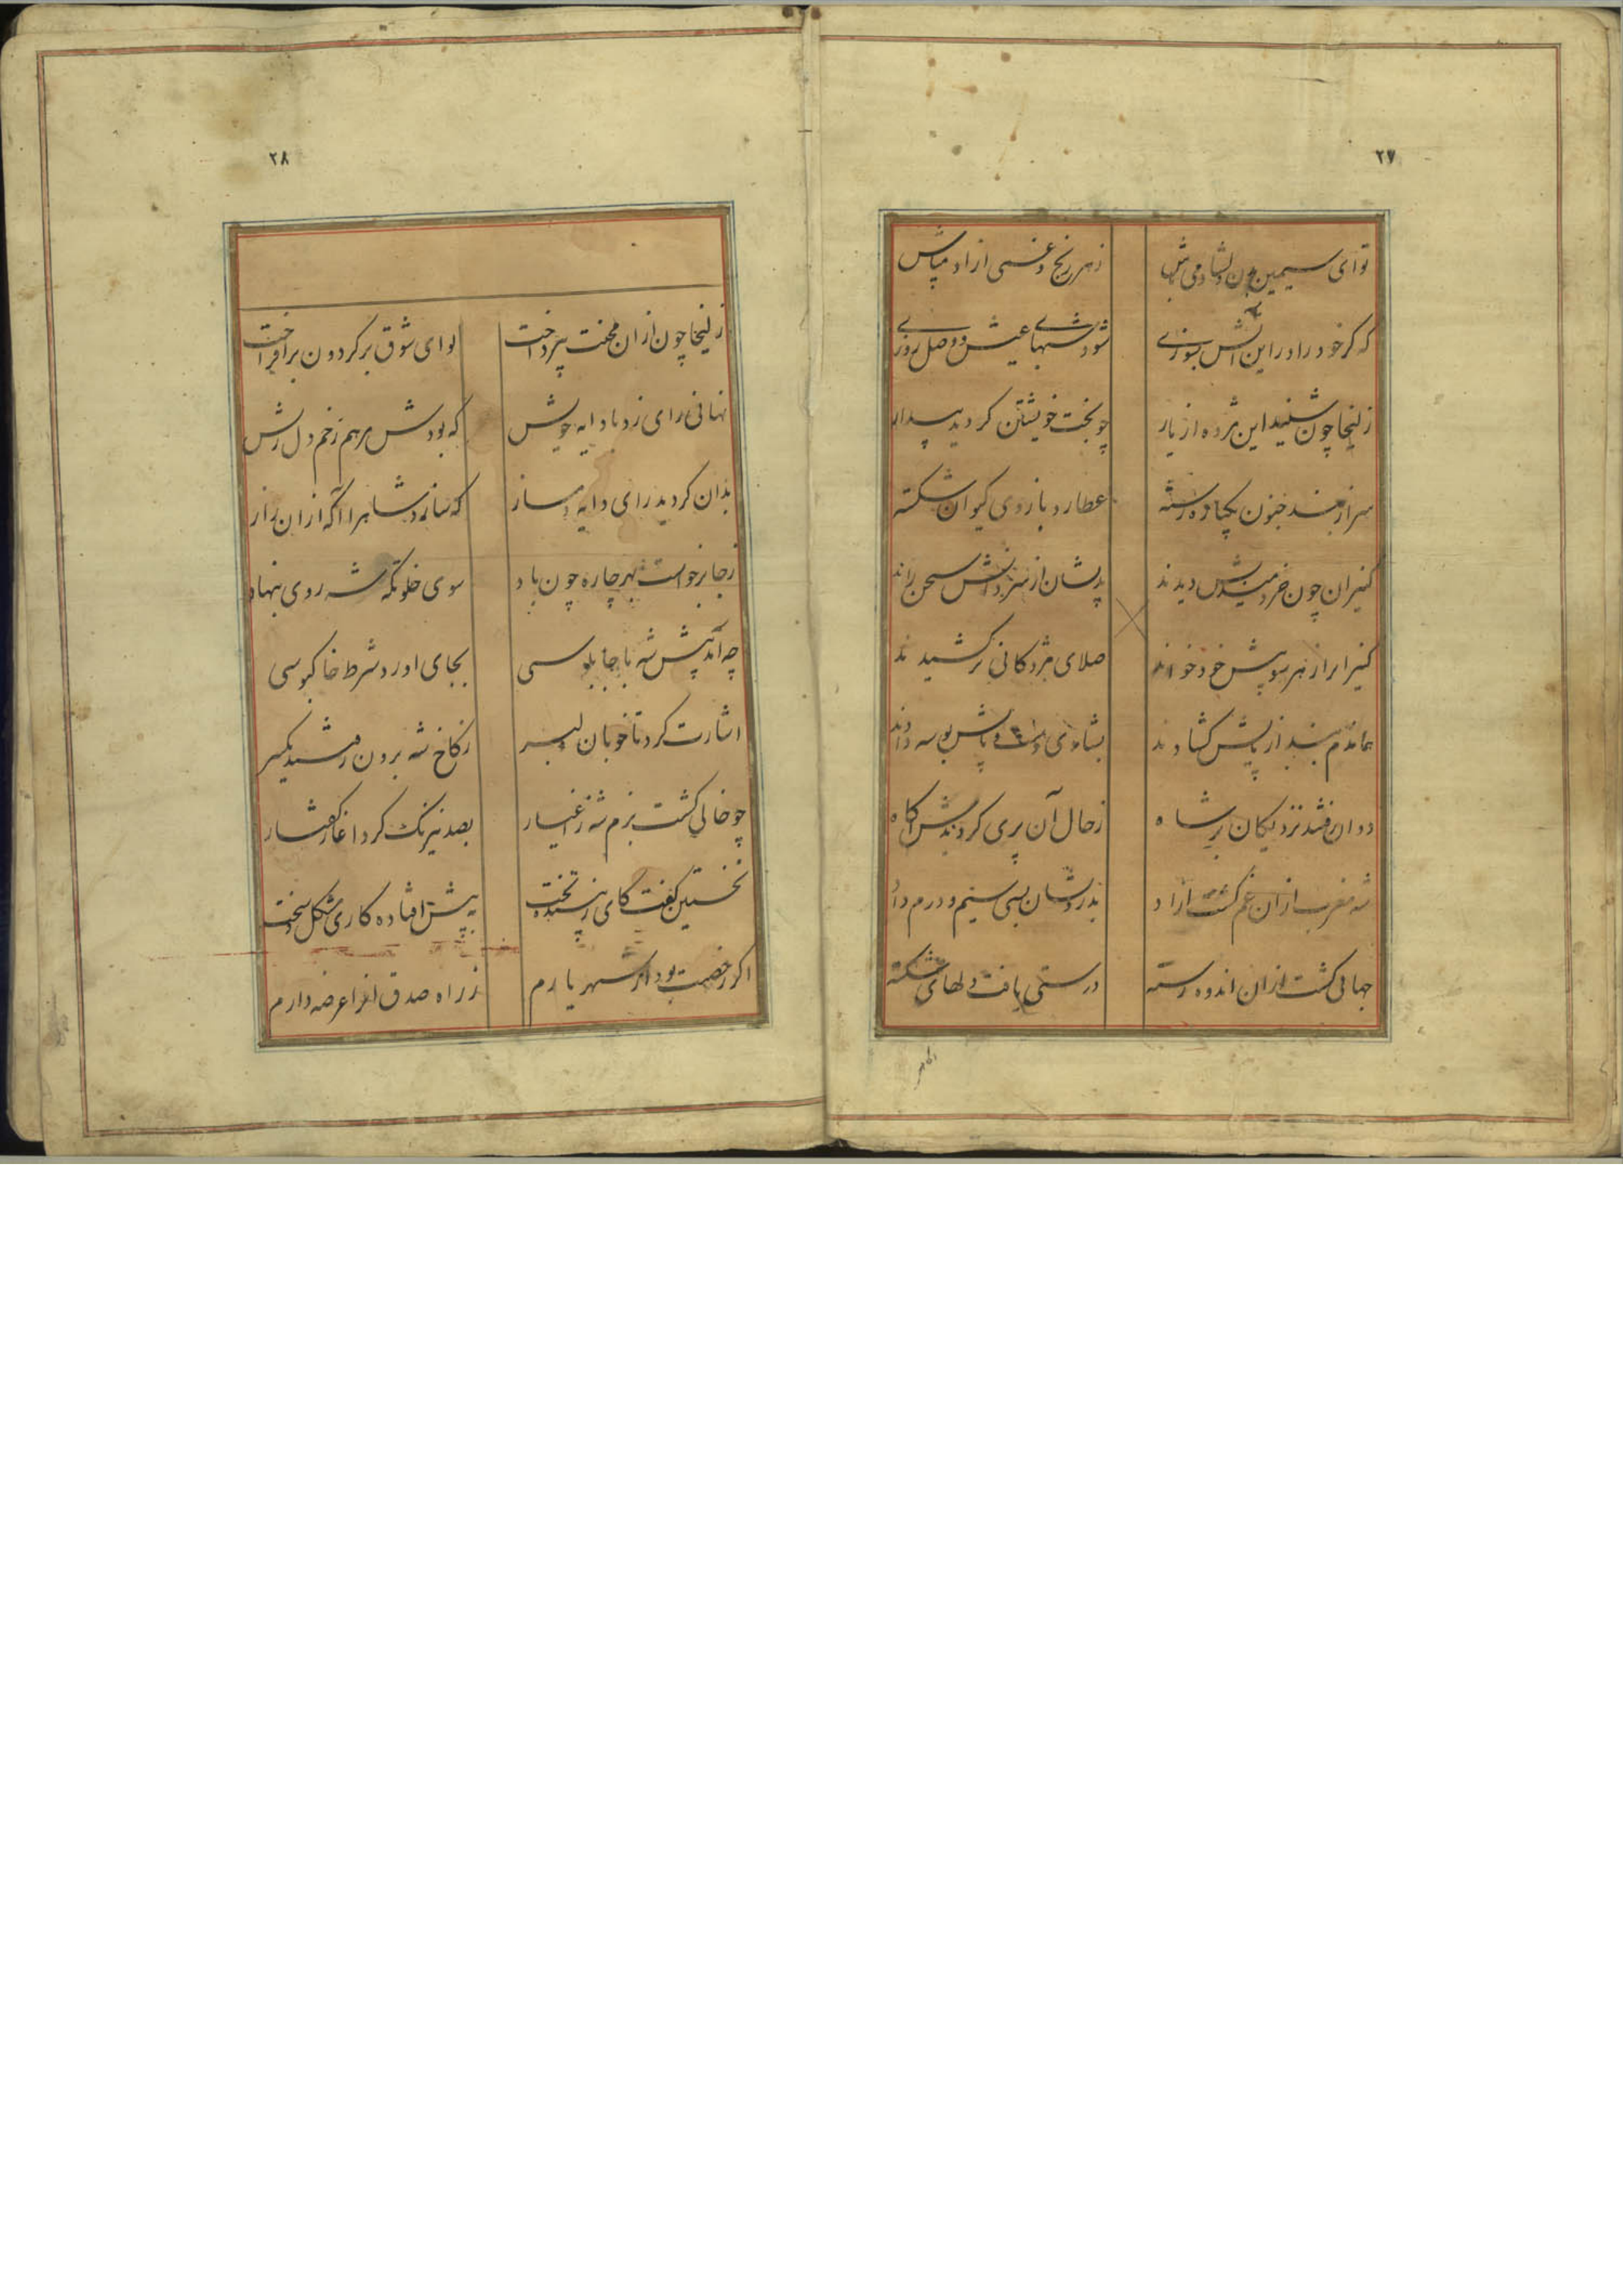 ۲۷
تو ای سیمین بدن دلشاد می باش زهر رنج و غمی ازاد میباش
که کر خود را در این اتش بسوزی شود شبهای عیش و وصل روزی
زلیخا چون شنید این مژده از یار چو بخت خویشتن کردید بیدار
سراز بند جنون یکباره رسته عطارد بازوی کیوان شکسته
کنیزان چون خردمندیش دیدند
کنیزانرا ز هر سو پیش خود خواند صلای مژدکانی بر کشیدند
هماندم بند از پایش کشادند بشادی دست و پایش بوسه دادند
دوان رفتند نزدیکان بر شاه ز حال آن پری کردندش اکاه
شه مغرب ازان غم کشت ازاد بدرویشان بسی سیم و درم داد
جهانی کشت ازان اندوه رسته درستی یافت دلهای شکسته
۲۸
زلیخا چون ازان محنت بپرداخت لوای شوق بر کردون برافراخت
نهانی رای زد با دایه خویش که بودش مرهم زخم دل ریش
بدان کردید رای دایه دمساز که سازد شاهرا آکه ازان راز
زجا برخواست بهر چاره چون باد سوی خلوتکه شه روی بنهاد
چه آمد پیش شه با چابلوسی بجای اورد شرط خاکبوسی
اشارت کرد تا خوبان دلبر ز کاخ شه برون رفتند یکسر
چو خالی کشت بزم شه ز اغیار بصد نیرنک کرد اغاز کفتار
نخستین کفت کای زیبنده تخت به پیش افتاده کاری مشکل و سخت
اکر رخصت بود از شهریارم ز راه صدق انرا عرضه دارم